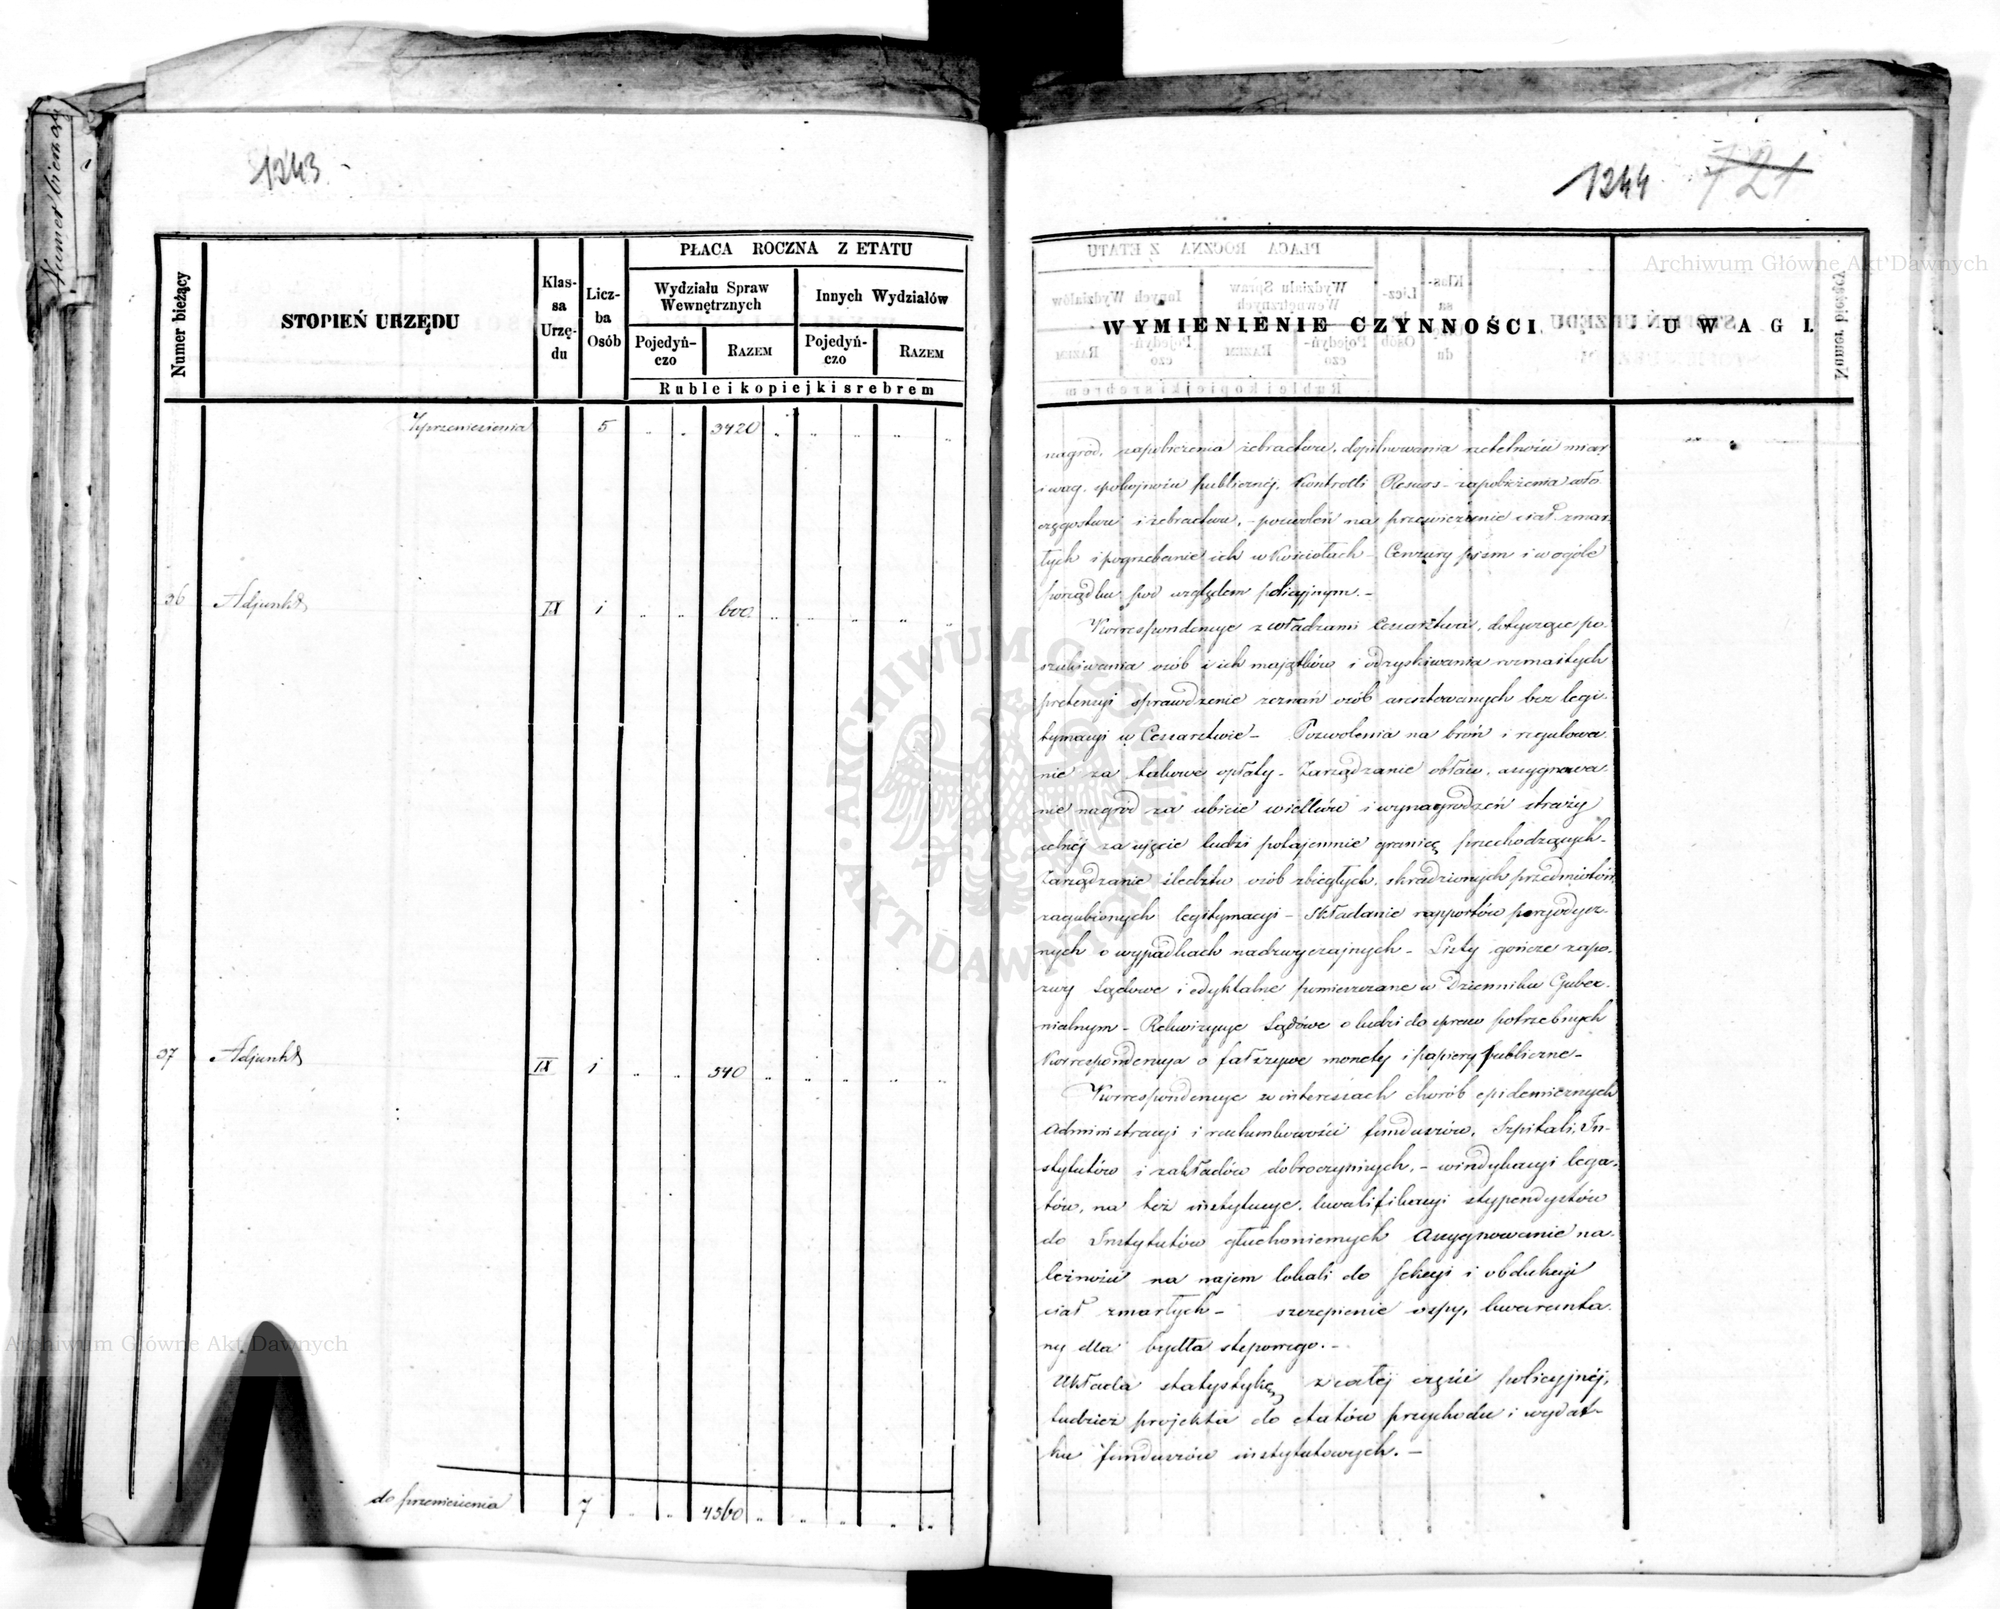 Numer bieżący
1243.
1244 721
Numer bieżący
STOPIEŃ URZĘDU
Klas-
sa
Urzę-
du
Licz-
ba
Osób
PŁACA ROCZNA Z ETATU
Wydziału Spraw
Wewnętrznych
Innych Wydziałów
Pojedyń-
czo
RAZEM
Pojedyń-
czo
RAZEM
Ruble i kopiejki srebrem
Z przeniesienia 5 " " 3420 " " " " "
36 Adjunkt IX 1 " " 600 " " " " "
37 Adjunkt IX 1 " " 540 " " " " "
do przeniesienia 7 " " 4560 " " " " "
WYMIENIENIE CZYNNOŚCI
UWAGI.
nagród, zapobieżenia żebractwu, dopilnowania rzetelności miar
i wag, spokojności publicznéj, Kontrolli Resurs - zapobieżenia włó-
częgostwu i żebractwu, - pozwoleń na przewiezienie ciał zmar-
łych i pogrzebanie ich w Kościołach - Cenzury pism i w ogóle
porządku pod względem policyjnym. -
Korrespondencye z władzami Cesarstwa, dotyczące po-
szukiwania osób i ich majątków i odzyskiwania rozmaitych
pretensyi sprawdzenie zeznań osób aresztowanych bez legi-
tymacyi w Cesarstwie - Pozwolenia na broń i regulowa-
nie za takowe opłaty - Zarządzanie obław, assygnowa-
nie nagród za ubicie wilków i wynagrodzeń straży
celnéj za ujęcie ludzi potajemnie granicę przechodzących -
Zarządzanie śledztw osób zbiegłych, skradzionych przedmiotów,
zagubionych legitymacyi - Składanie rapportów peryodycz-
nych o wypadkach nadzwyczajnych - Listy gończe zapo-
zwy Sądowe i edyktalne pomieszczane w Dzienniku Guber-
nialnym - Rekwizycye Sądowe o ludzi do spraw potrzebnych
Korrespondencya o fałszywe monety i papiery publiczne -
Korrespondencye w interessach chorób epidemicznych
Administracyi i rachunkowości funduszów, Szpitali, In-
stytutów i zakładów dobroczynnych, - windykacyi lega-
tów, na też instytucye, kwalifikacyi stypendystów
do Instytutów głuchoniemych Assygnowanie na-
leżności na najem lokali do sekcyi i obdukcyi
ciał zmarłych - szczepienie ospy, kwaranta-
ny dla bydła stepowego. -
Układa statystykę z całéj części policyjnéj,
tudzież projekta do etatów przychodu i wydat-
ku funduszów instytutowych. -
Archiwum Główne Akt Dawnych
Archiwum Główne Akt Dawnych
ARCHIWUM GŁÓWNE AKT DAWNYCH